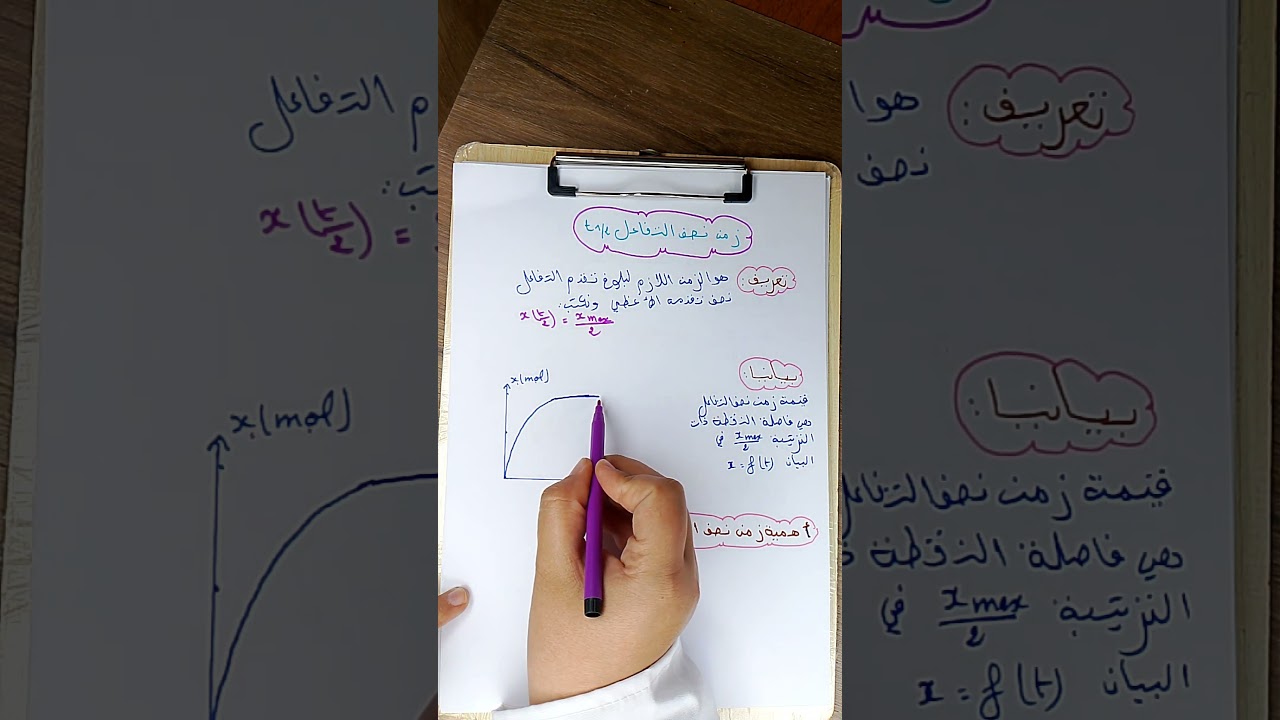 زمن نصف التفاعل t1/2
تعريف:
هو الزمن اللازم لبلوغ تقدم التفاعل
نصف تقدمه الأعظمي ونكتب:
x(t/2) = xmax/2
بيانيا:
قيمة زمن نصف التفاعل
هي فاصلة النقطة ذات
الترتيبة xmax/2 في
البيان x = f(t)
x(mol)
أهمية زمن نصف ا